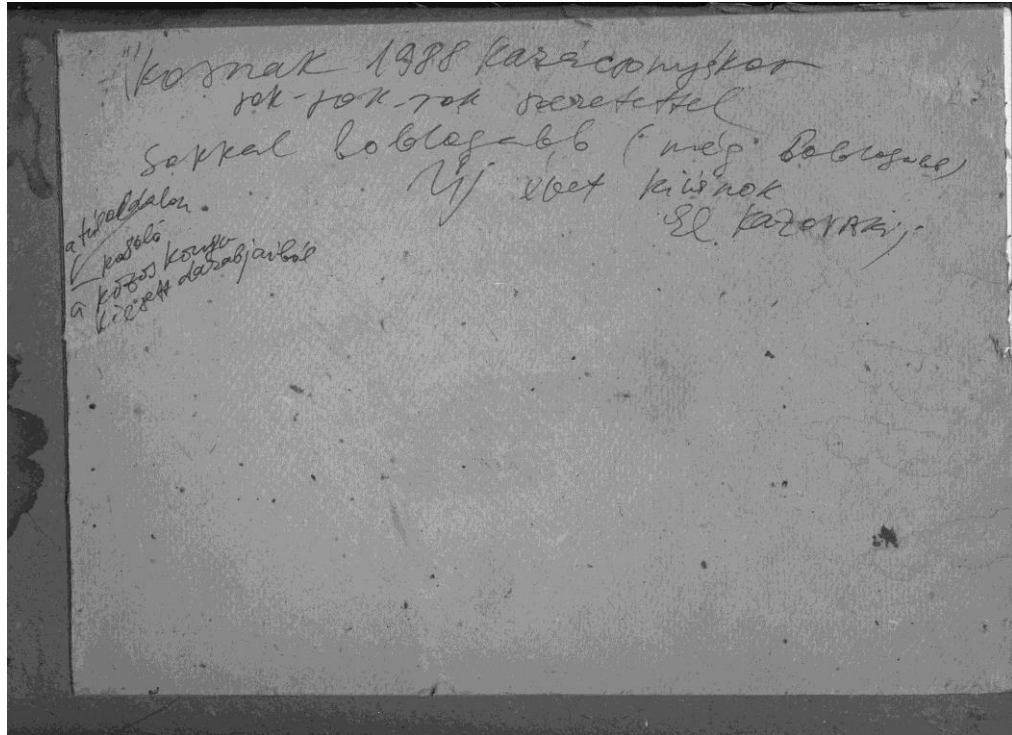 1988 Karácsonykor
sok-sok-sok szeretettel
Sokkal boldogabb (még boldogabb)
Új évet kívánok
El Kazovszkij
a túloldalon
a közös könyv
kiesett darabjaiból